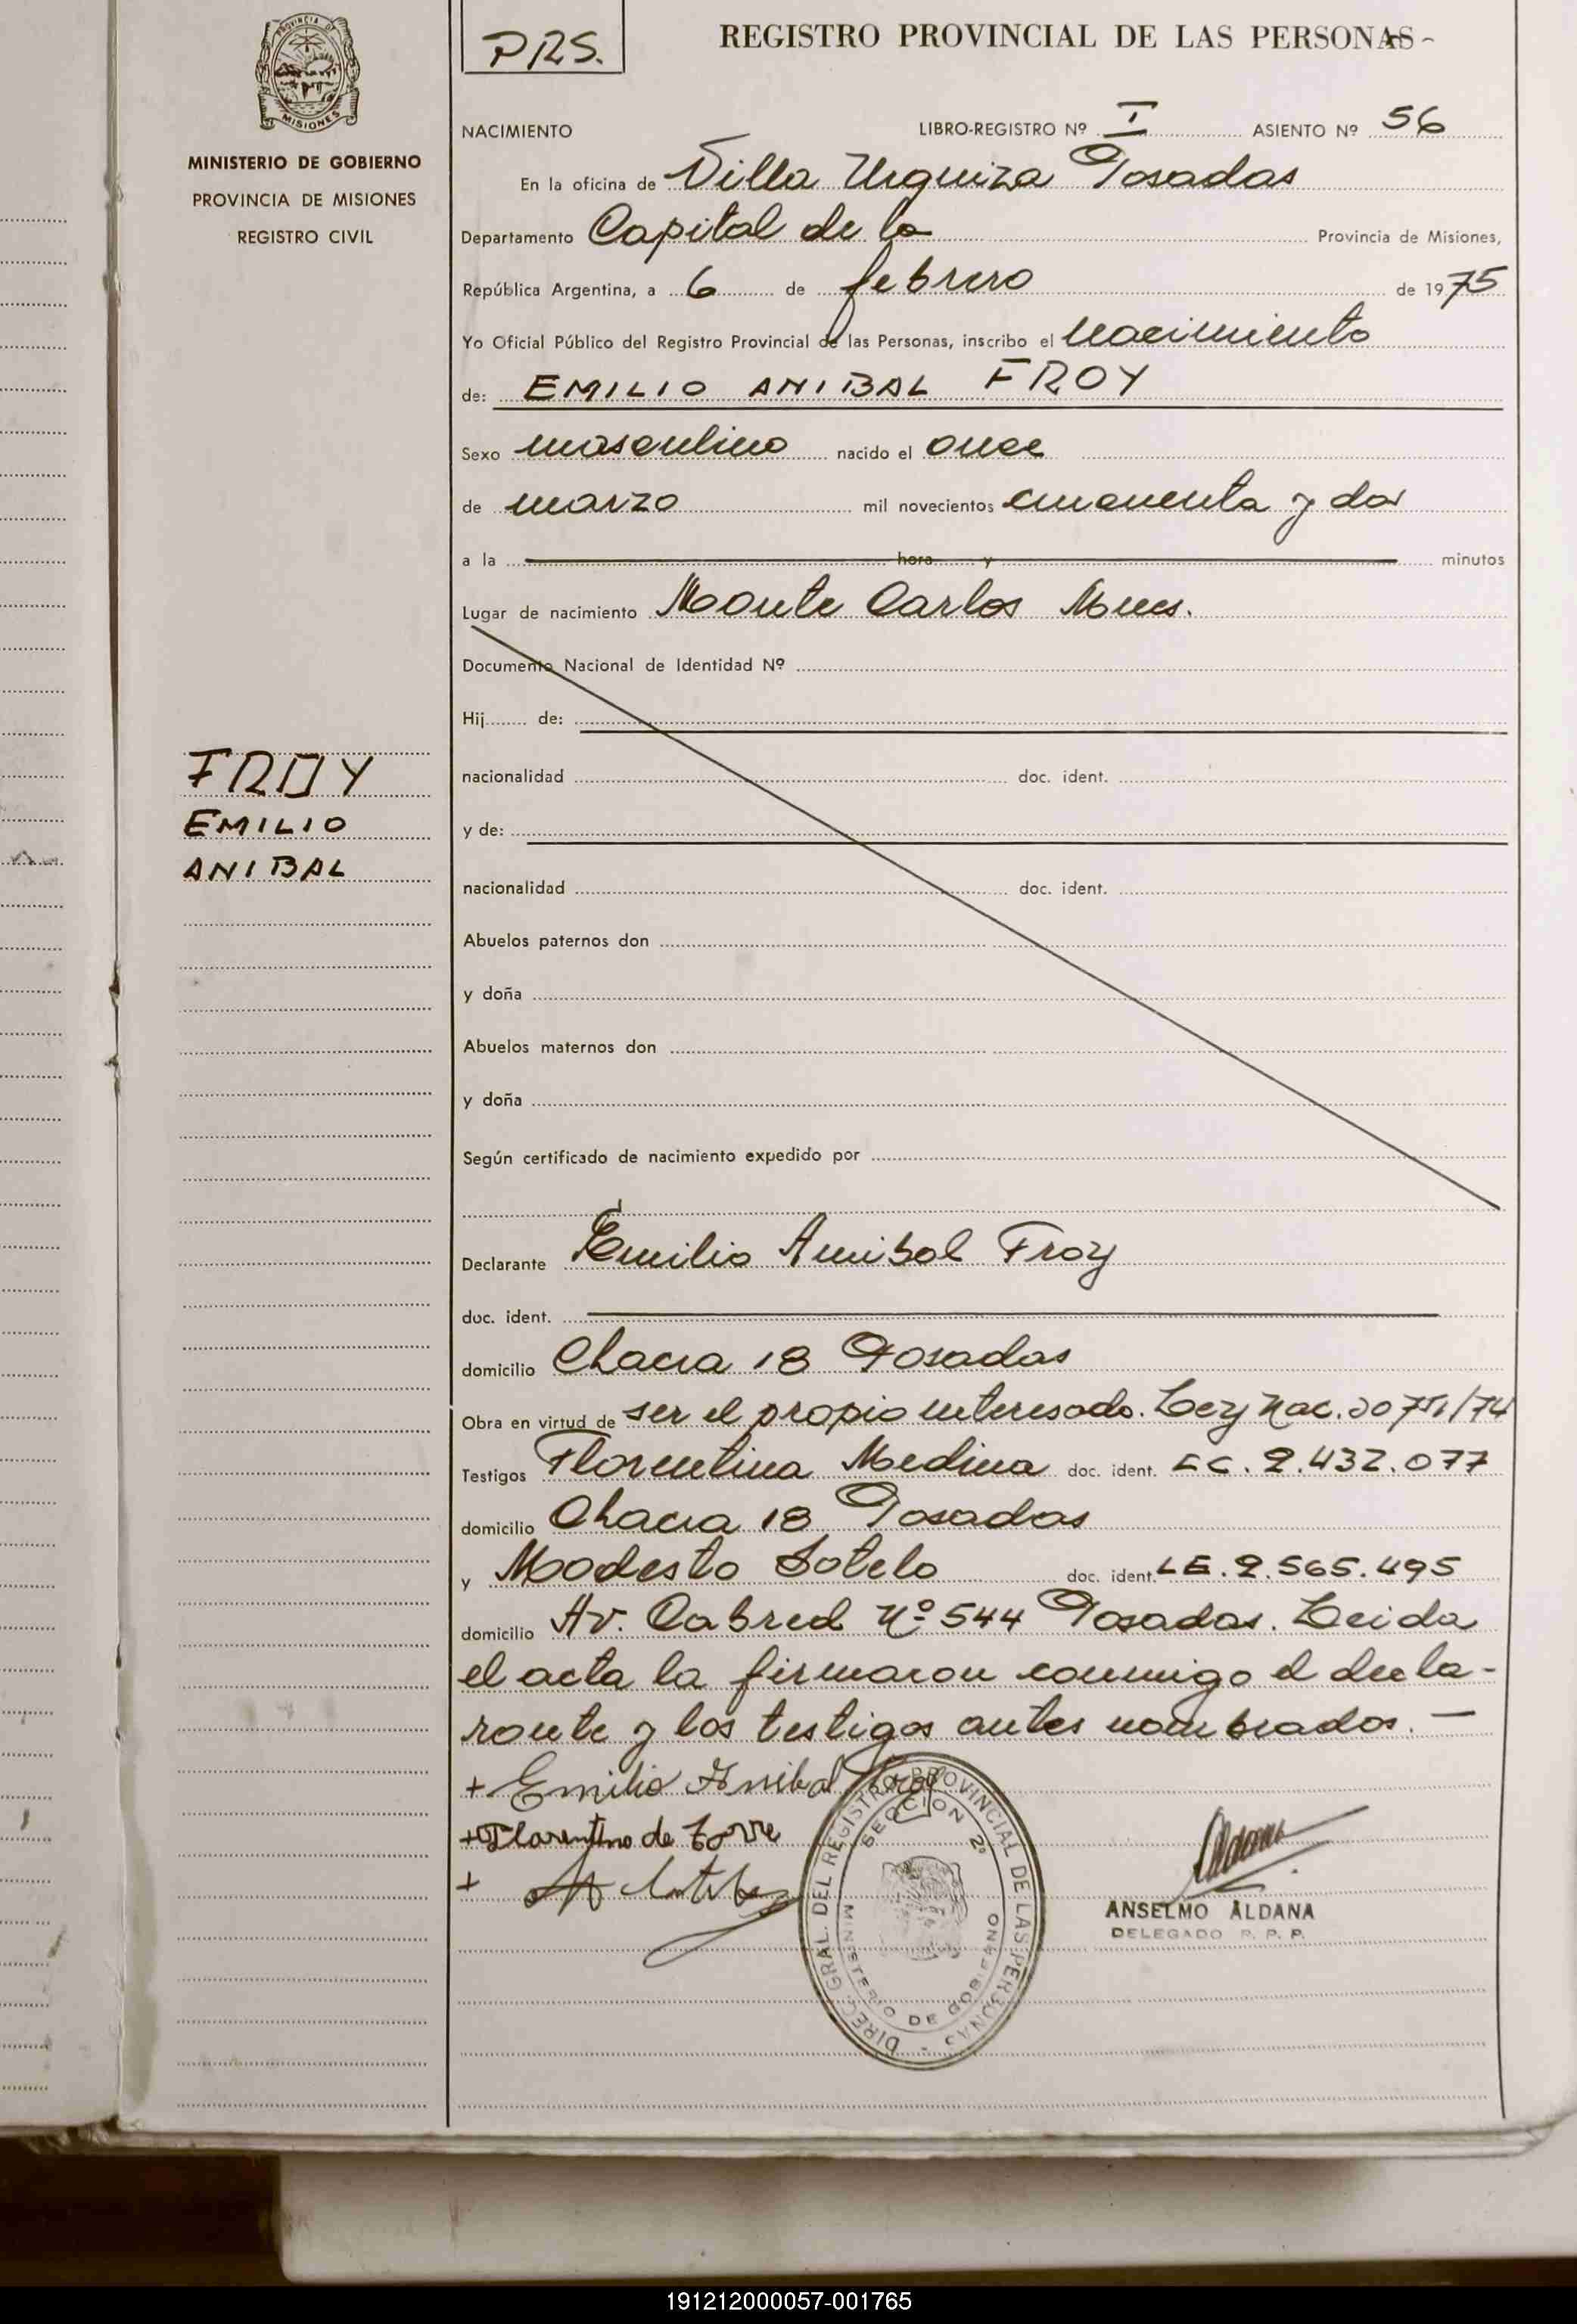 PRS.
REGISTRO PROVINCIAL DE LAS PERSONAS-
PROVINCIA DE
MISIONES
MINISTERIO DE GOBIERNO
PROVINCIA DE MISIONES
REGISTRO CIVIL
NACIMIENTO LIBRO-REGISTRO Nº I ASIENTO Nº 56
En la oficina de Villa Urquiza Posadas
Departamento Capital de la Provincia de Misiones,
República Argentina, a 6 de febrero de 1975
Yo Oficial Público del Registro Provincial de las Personas, inscribo el nacimiento
de: EMILIO ANIBAL FROY
Sexo masculino nacido el once
de marzo mil novecientos cincuenta y dos
a la hora y minutos
Lugar de nacimiento Monte Carlos Mnes.
Documento Nacional de Identidad Nº
Hij de:
FROY
EMILIO
ANIBAL
nacionalidad doc. ident.
y de:
nacionalidad doc. ident.
Abuelos paternos don
y doña
Abuelos maternos don
y doña
Según certificado de nacimiento expedido por
Declarante Emilio Anibal Froy
doc. ident.
domicilio Chacra 18 Posadas
Obra en virtud de ser el propio interesado. Ley Nac. /74
Testigos Florentina Medina doc. ident. LC. 2.432.077
domicilio Chacra 18 Posadas
y Modesto Sotelo doc. ident. LE. 2.565.495
domicilio Av. Cabred Nº 544 Posadas. Leida
el acta la firmaron conmigo el decla-
rante y los testigos antes nombrados. —
+ Emilio Anibal Froy
+ Florentina de Torre
+
DIREC. GRAL. DEL REGISTRO PROVINCIAL DE LAS PERSONAS -
SECCION 2º
MINISTERIO DE GOBIERNO
Aldana
ANSELMO ALDANA
DELEGADO R. P. P.
191212000057-001765